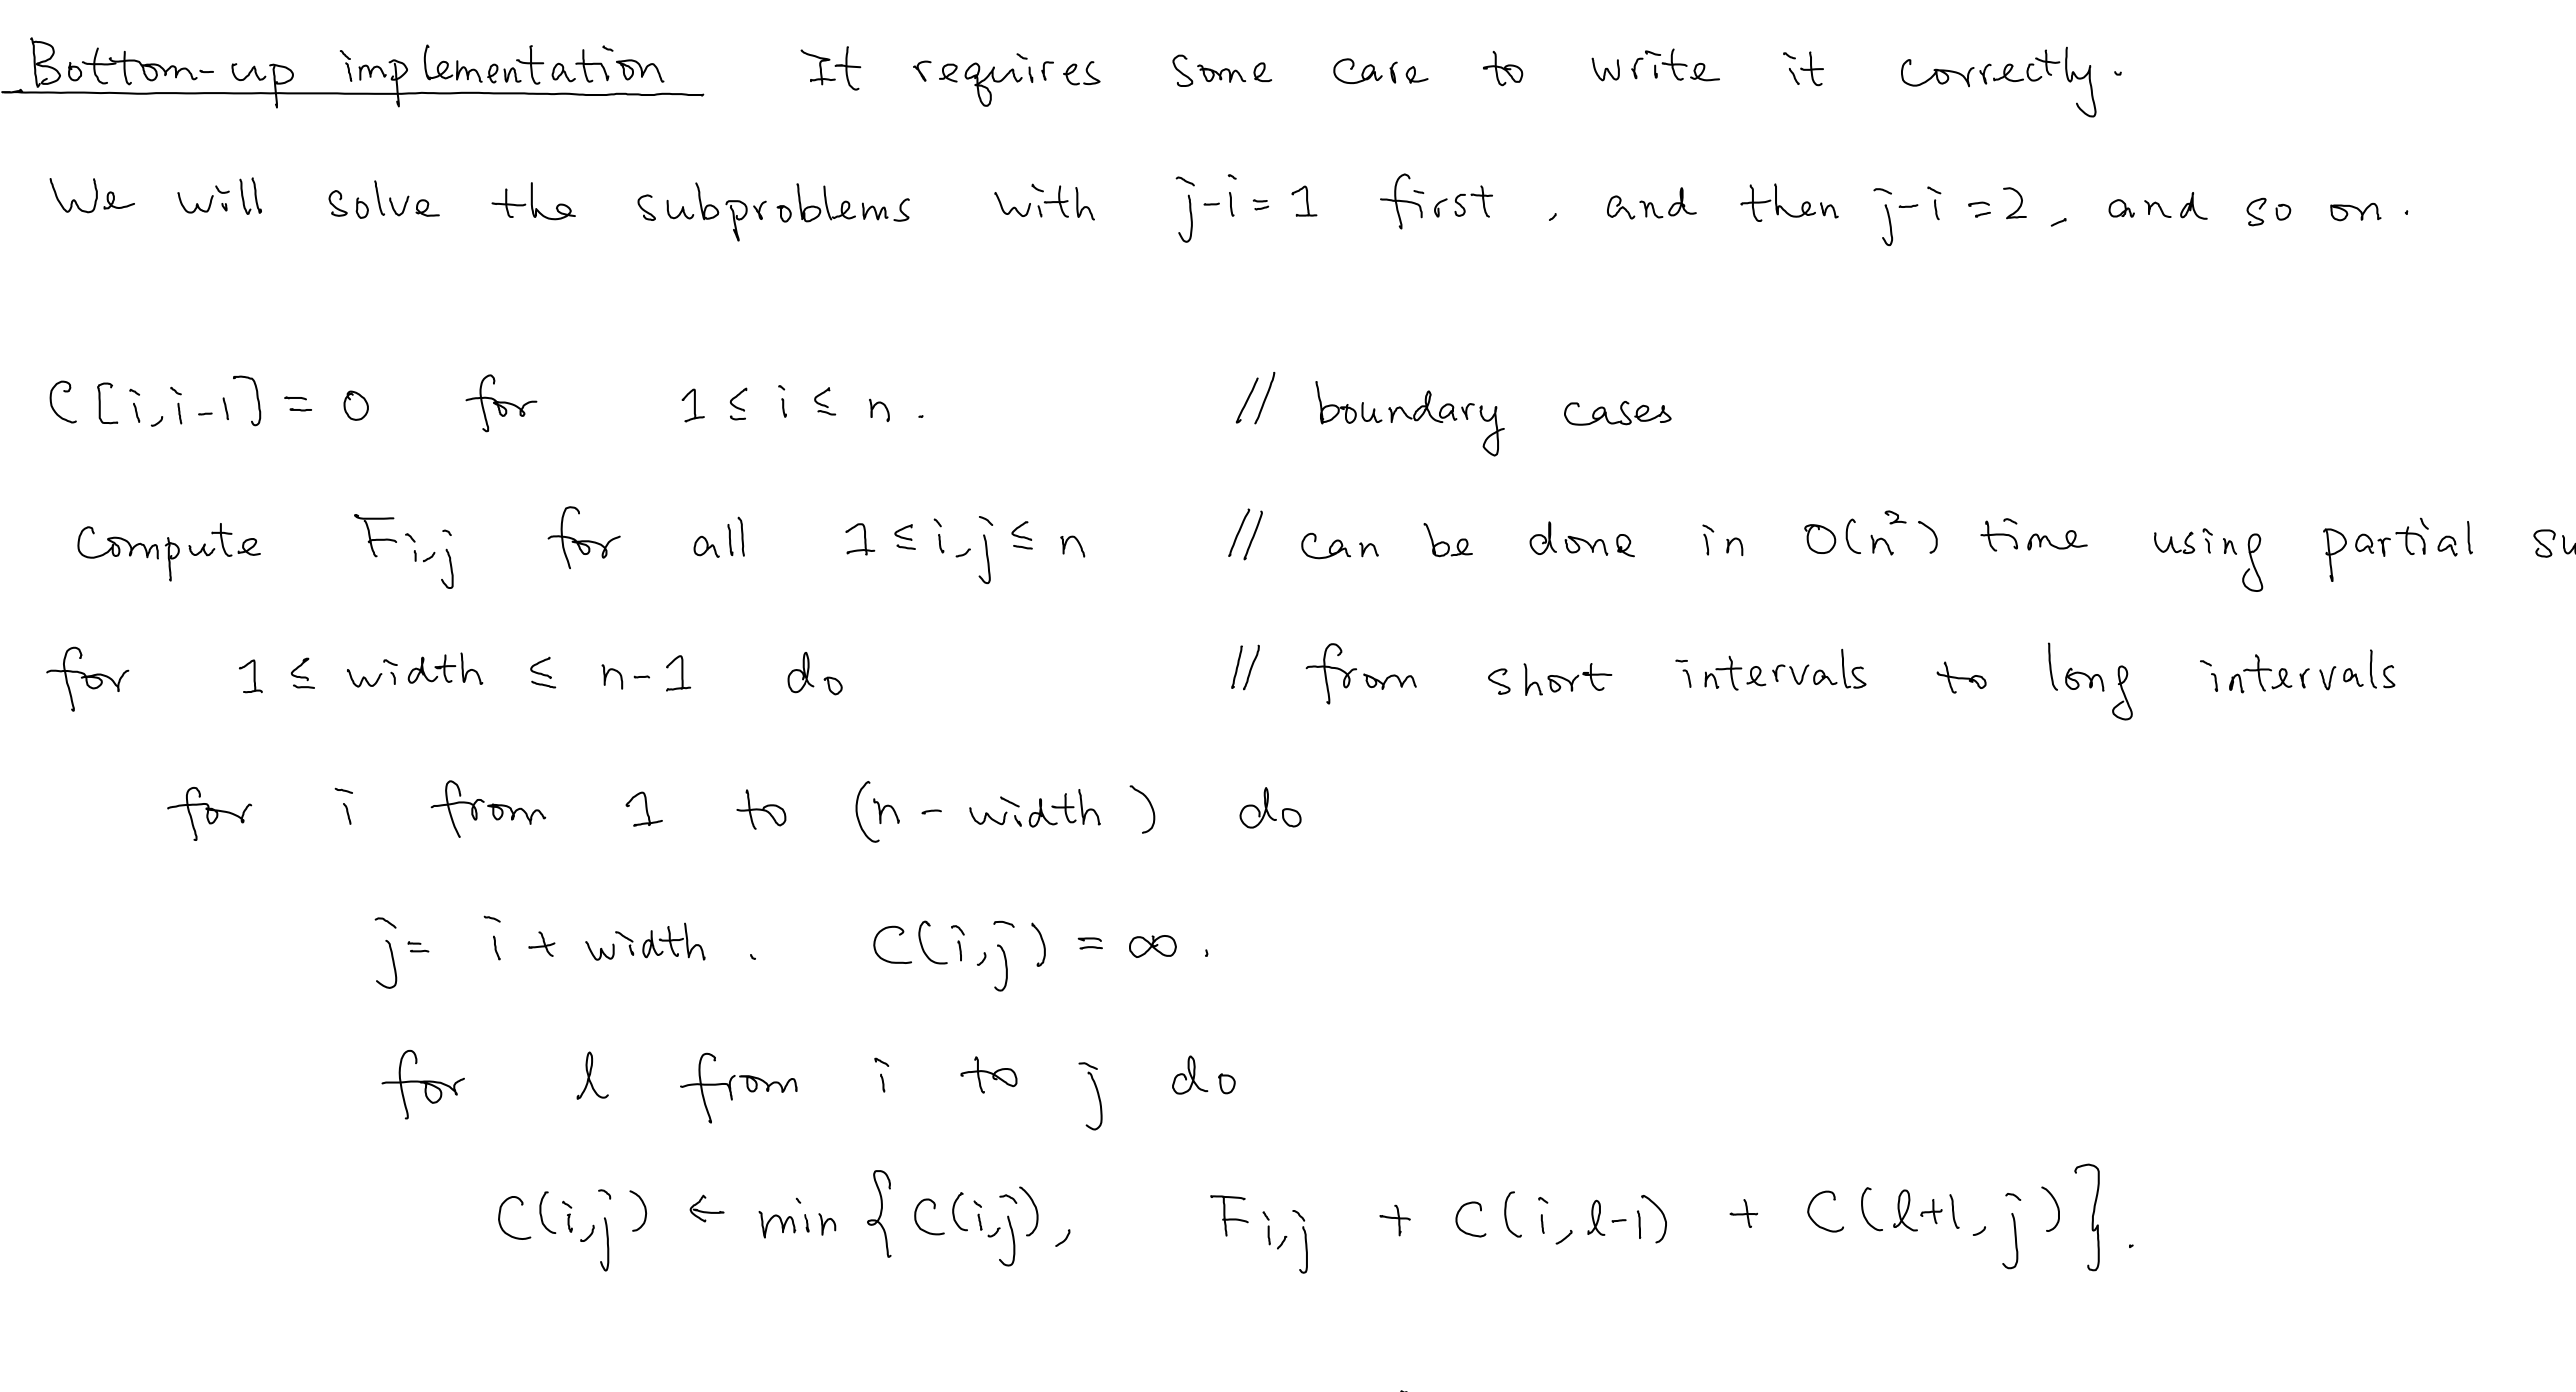 Bottom-up implementation It requires some care to write it correctly.
We will solve the subproblems with j-i=1 first, and then j-i=2, and so on.
C[i,i-1]=0 for 1≤i≤n. // boundary cases
compute Fi,j for all 1≤i,j≤n // can be done in O(n²) time using partial su
for 1≤ width ≤ n-1 do // from short intervals to long intervals
for i from 1 to (n-width) do
j= i+width. C(i,j)=∞.
for l from i to j do
C(i,j) ← min{C(i,j), Fi,j + C(i,l-1) + C(l+1,j)}.